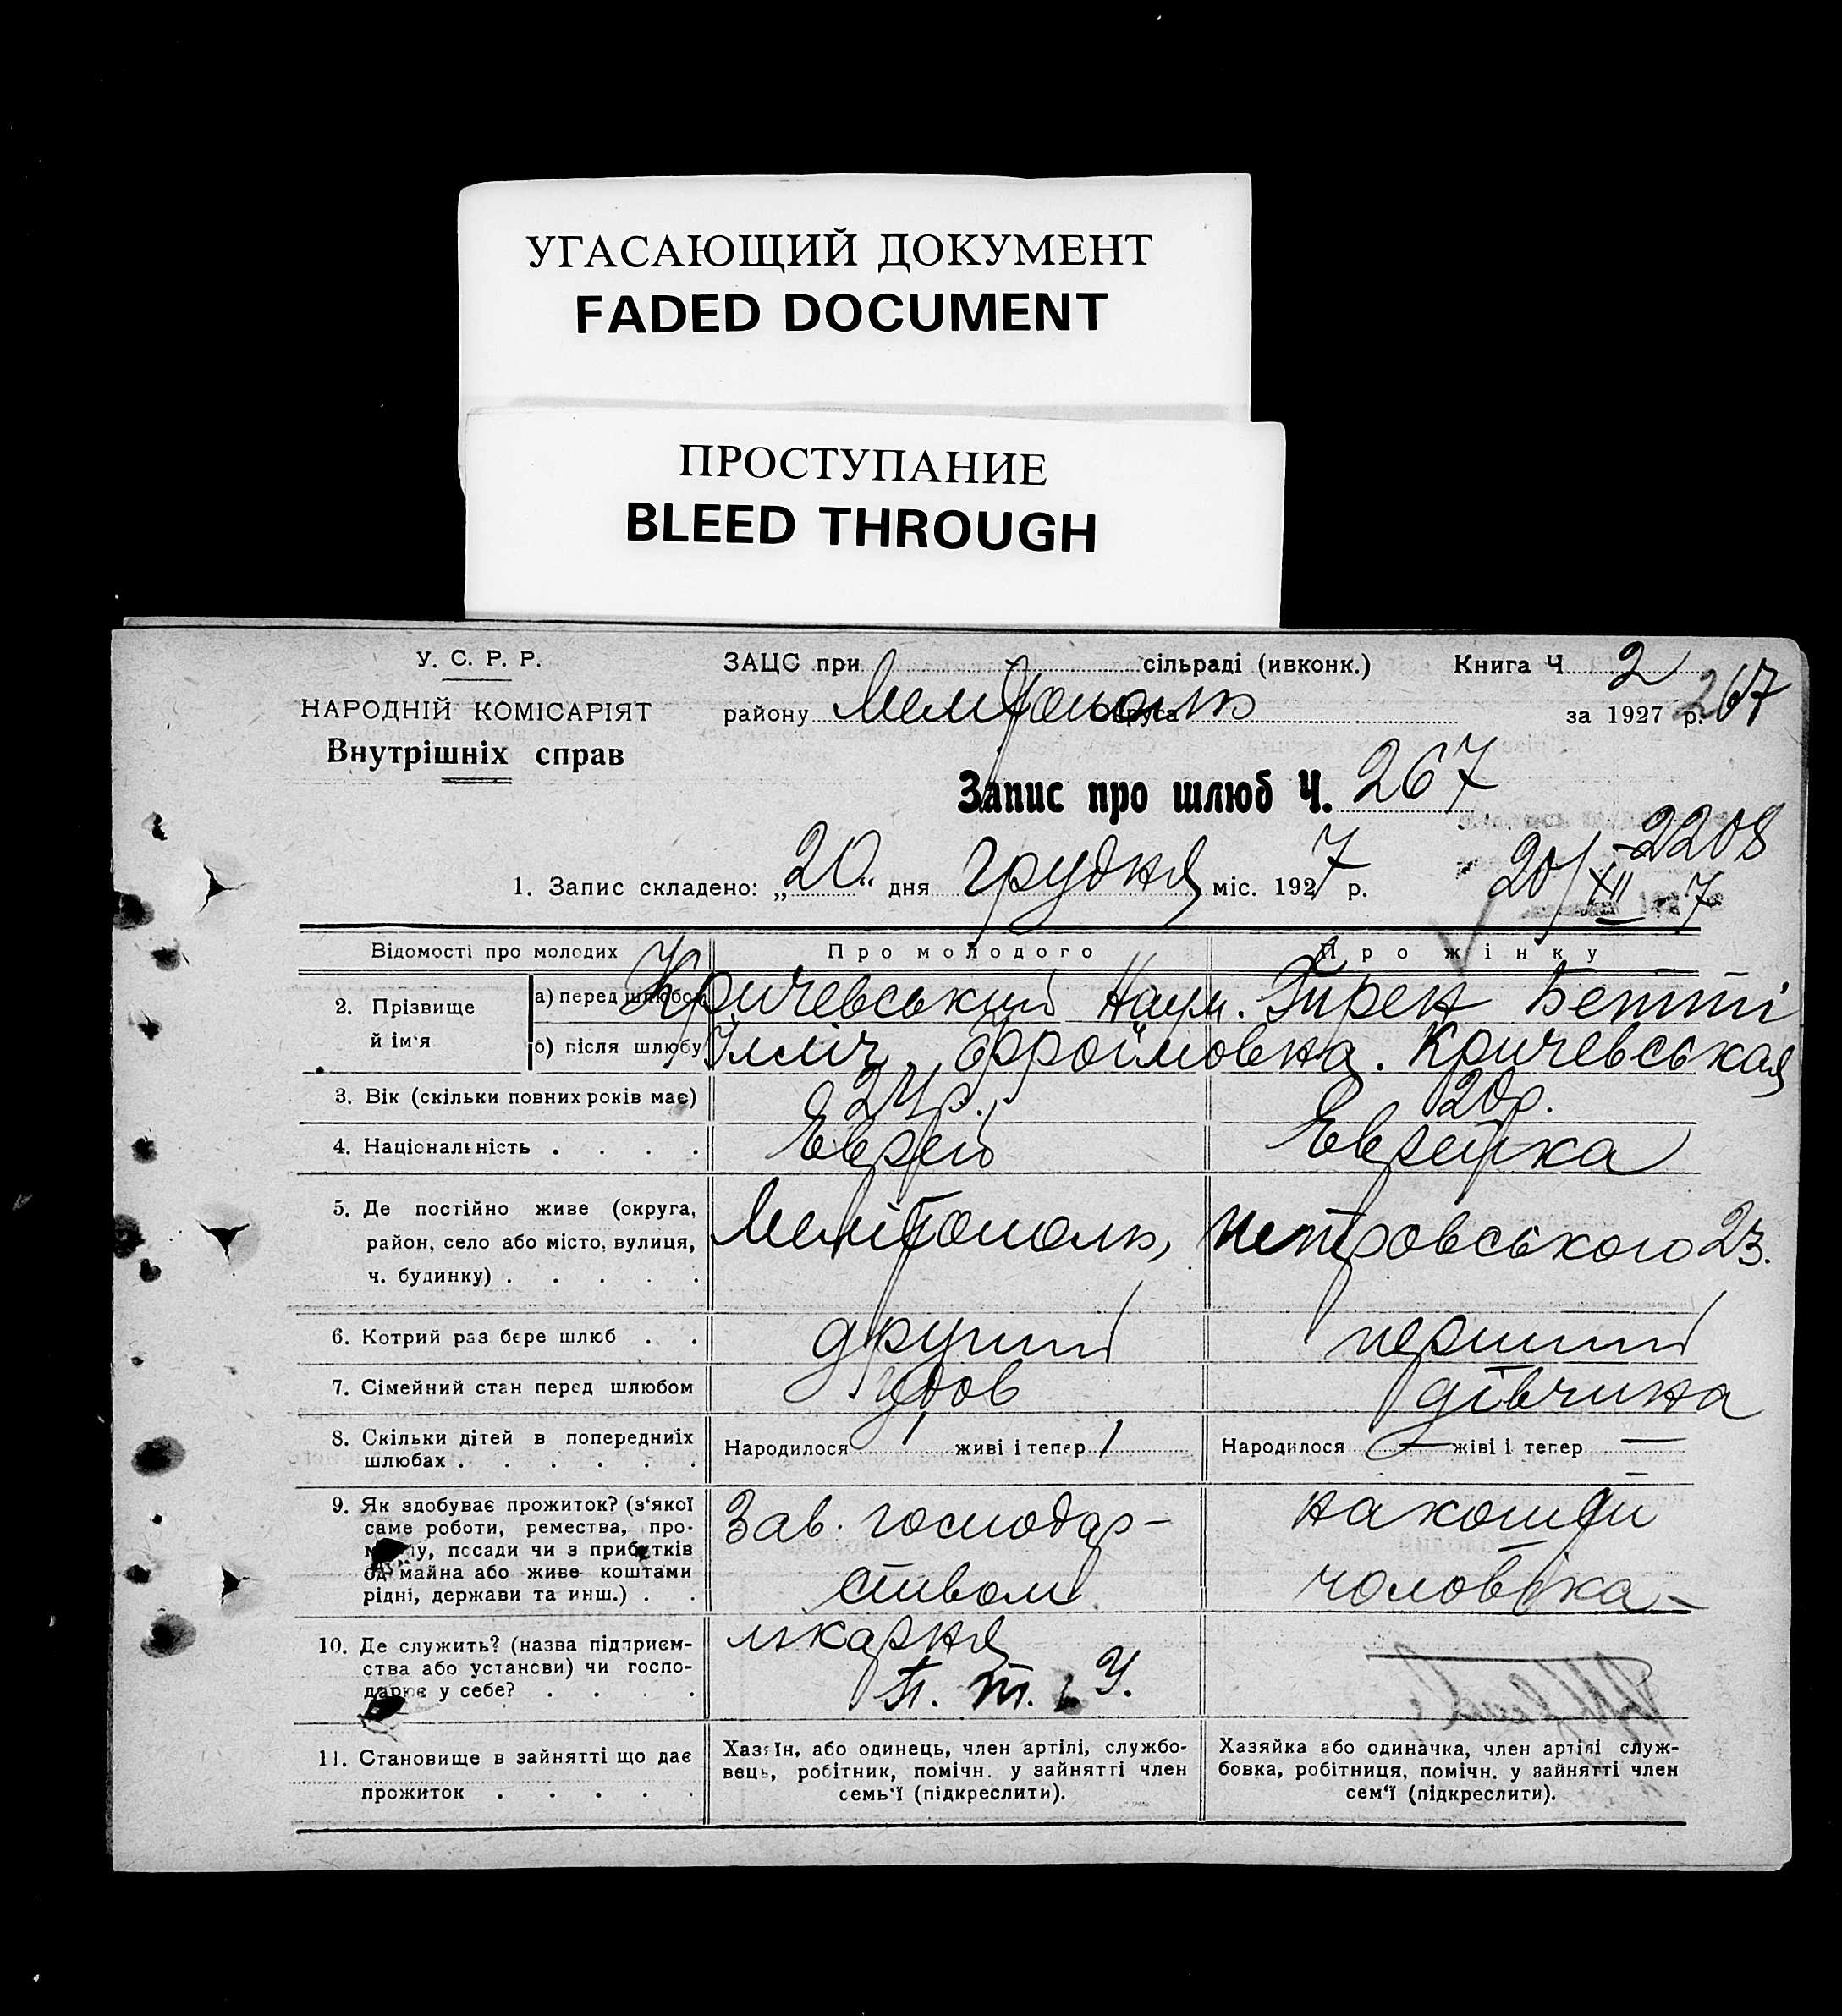 УГАСАЮЩИЙ ДОКУМЕНТ
FADED DOCUMENT
ПРОСТУПАНИЕ
BLEED THROUGH
У. С. Р. Р.
НАРОДНІЙ КОМІСАРІЯТ
Внутрішніх справ
ЗАЦС при сільраді (ивконк.)
Книга Ч 2
району Мелітополь округа
за 1927 р. 267
Запис про шлюб Ч. 267
2208
1. Запис складено: „20“ дня Грудня міс. 1927 р.
20/XII-7
Відомості про молодих Про молодого Про жінку
2. Прізвище й ім‘я
а) перед шлюбом Кричевський Наум. Гирен Бетті
б) після шлюбу Ілліч. Ефроїмовна. Кричевськая
3. Вік (скільки повних років має) 24р. 20р.
4. Національність . . . . Еврей Еврейка
5. Де постійно живе (округа,
район, село або місто, вулиця,
ч. будинку) . . . . .
Мелітополь, Петровського 23.
6. Котрий раз бере шлюб . . другий перший
7. Сімейний стан перед шлюбом удов дівчина
8. Скільки дітей в попередніїх
шлюбах . . . . . .
Народилося 1 живі і тепер 1
Народилося — жіві і тепер —
9. Як здобуває прожиток? (з‘якої
саме роботи, ремества, про-
мислу, посади чи з прибутків
од майна або живе коштами
рідні, держави та инш.) . .
Зав. господар-
ством
на кошти
чоловіка —
10. Де служить? (назва підприєм-
ства або установи) чи госпо-
дарює у себе? . . . .
лікарня
11. Становище в зайнятті що дає
прожиток . . . . .
Хазяїн, або одинець, член артілі, службо-
вець, робітник, помічн. у зайнятті член
семь‘ї (підкреслити).
Хазяйка або одиначка, член артілі служ-
бовка, робітниця, помічн. у зайнятті член
сем‘ї (підкреслити).